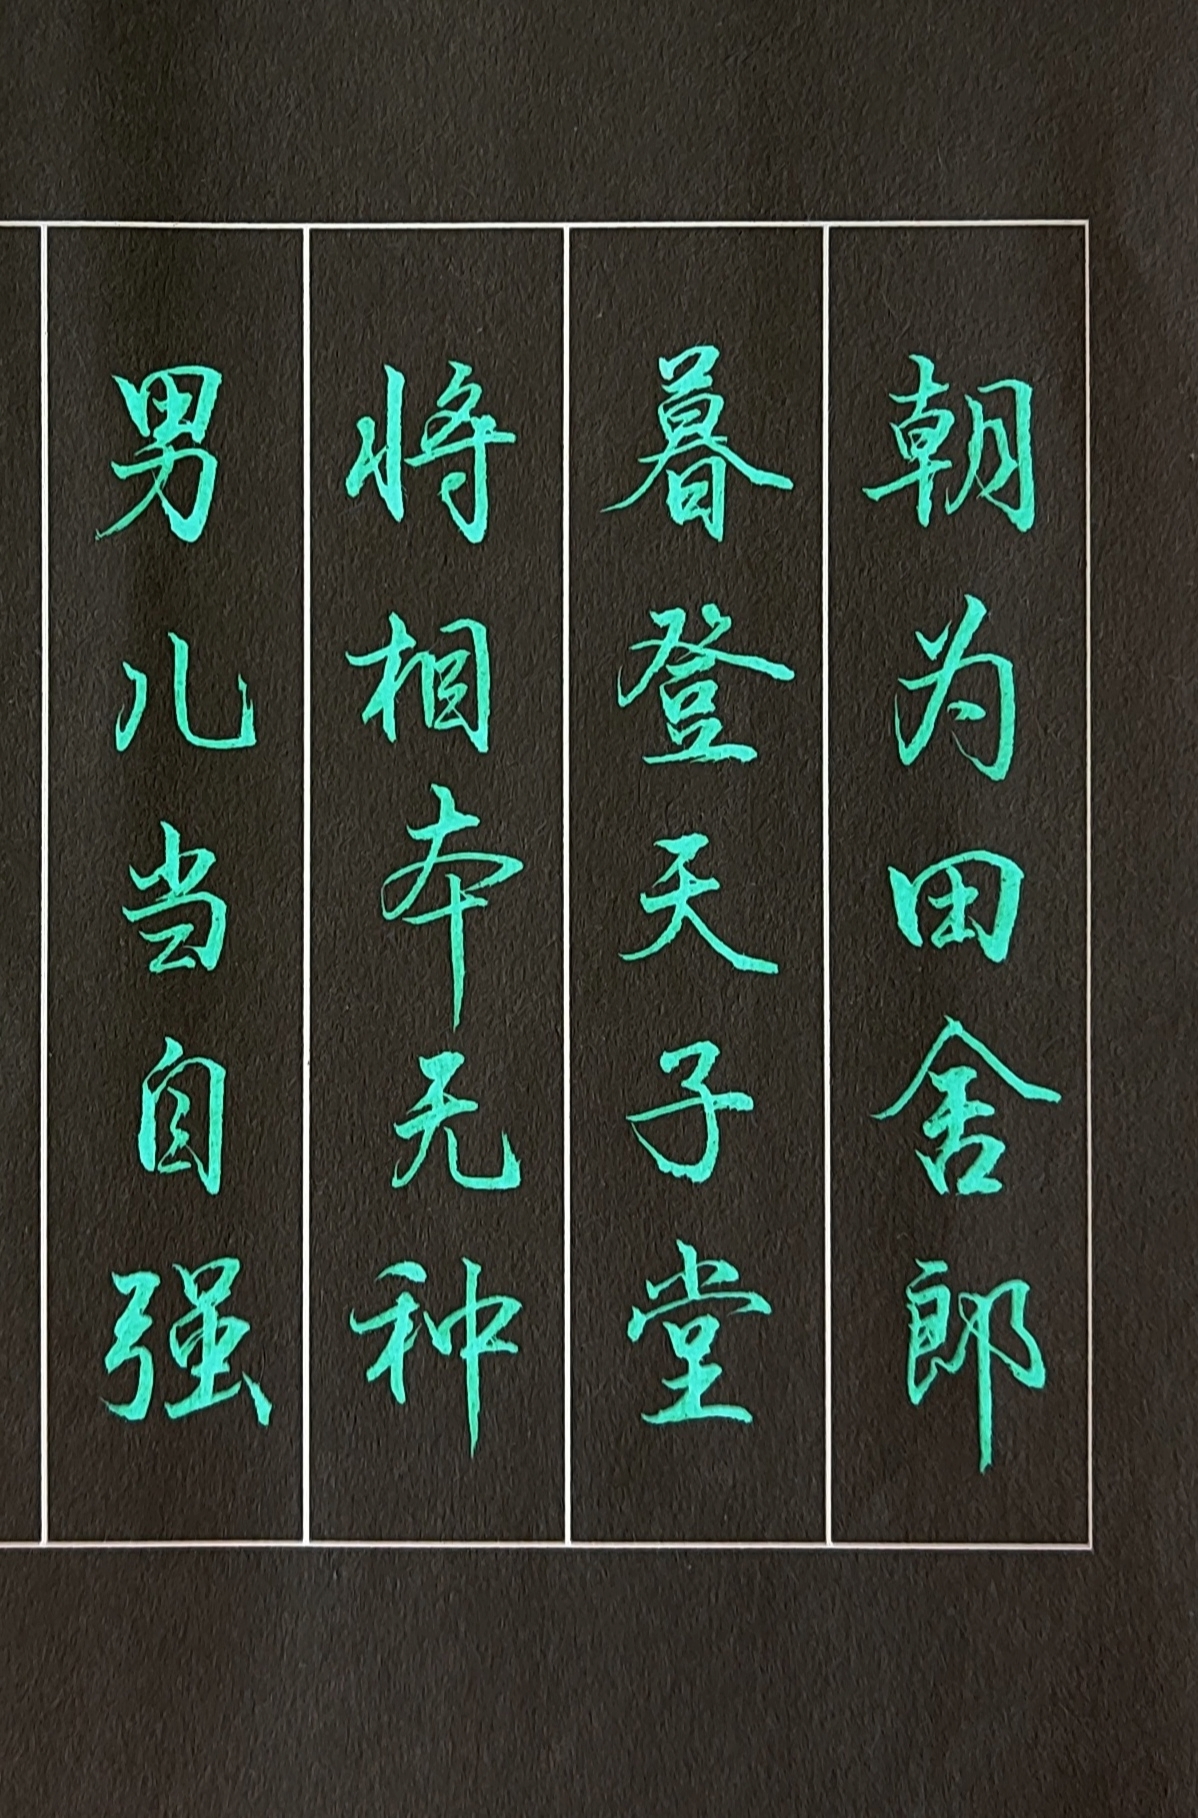 朝为田舍郎
暮登天子堂
将相本无种
男儿当自强